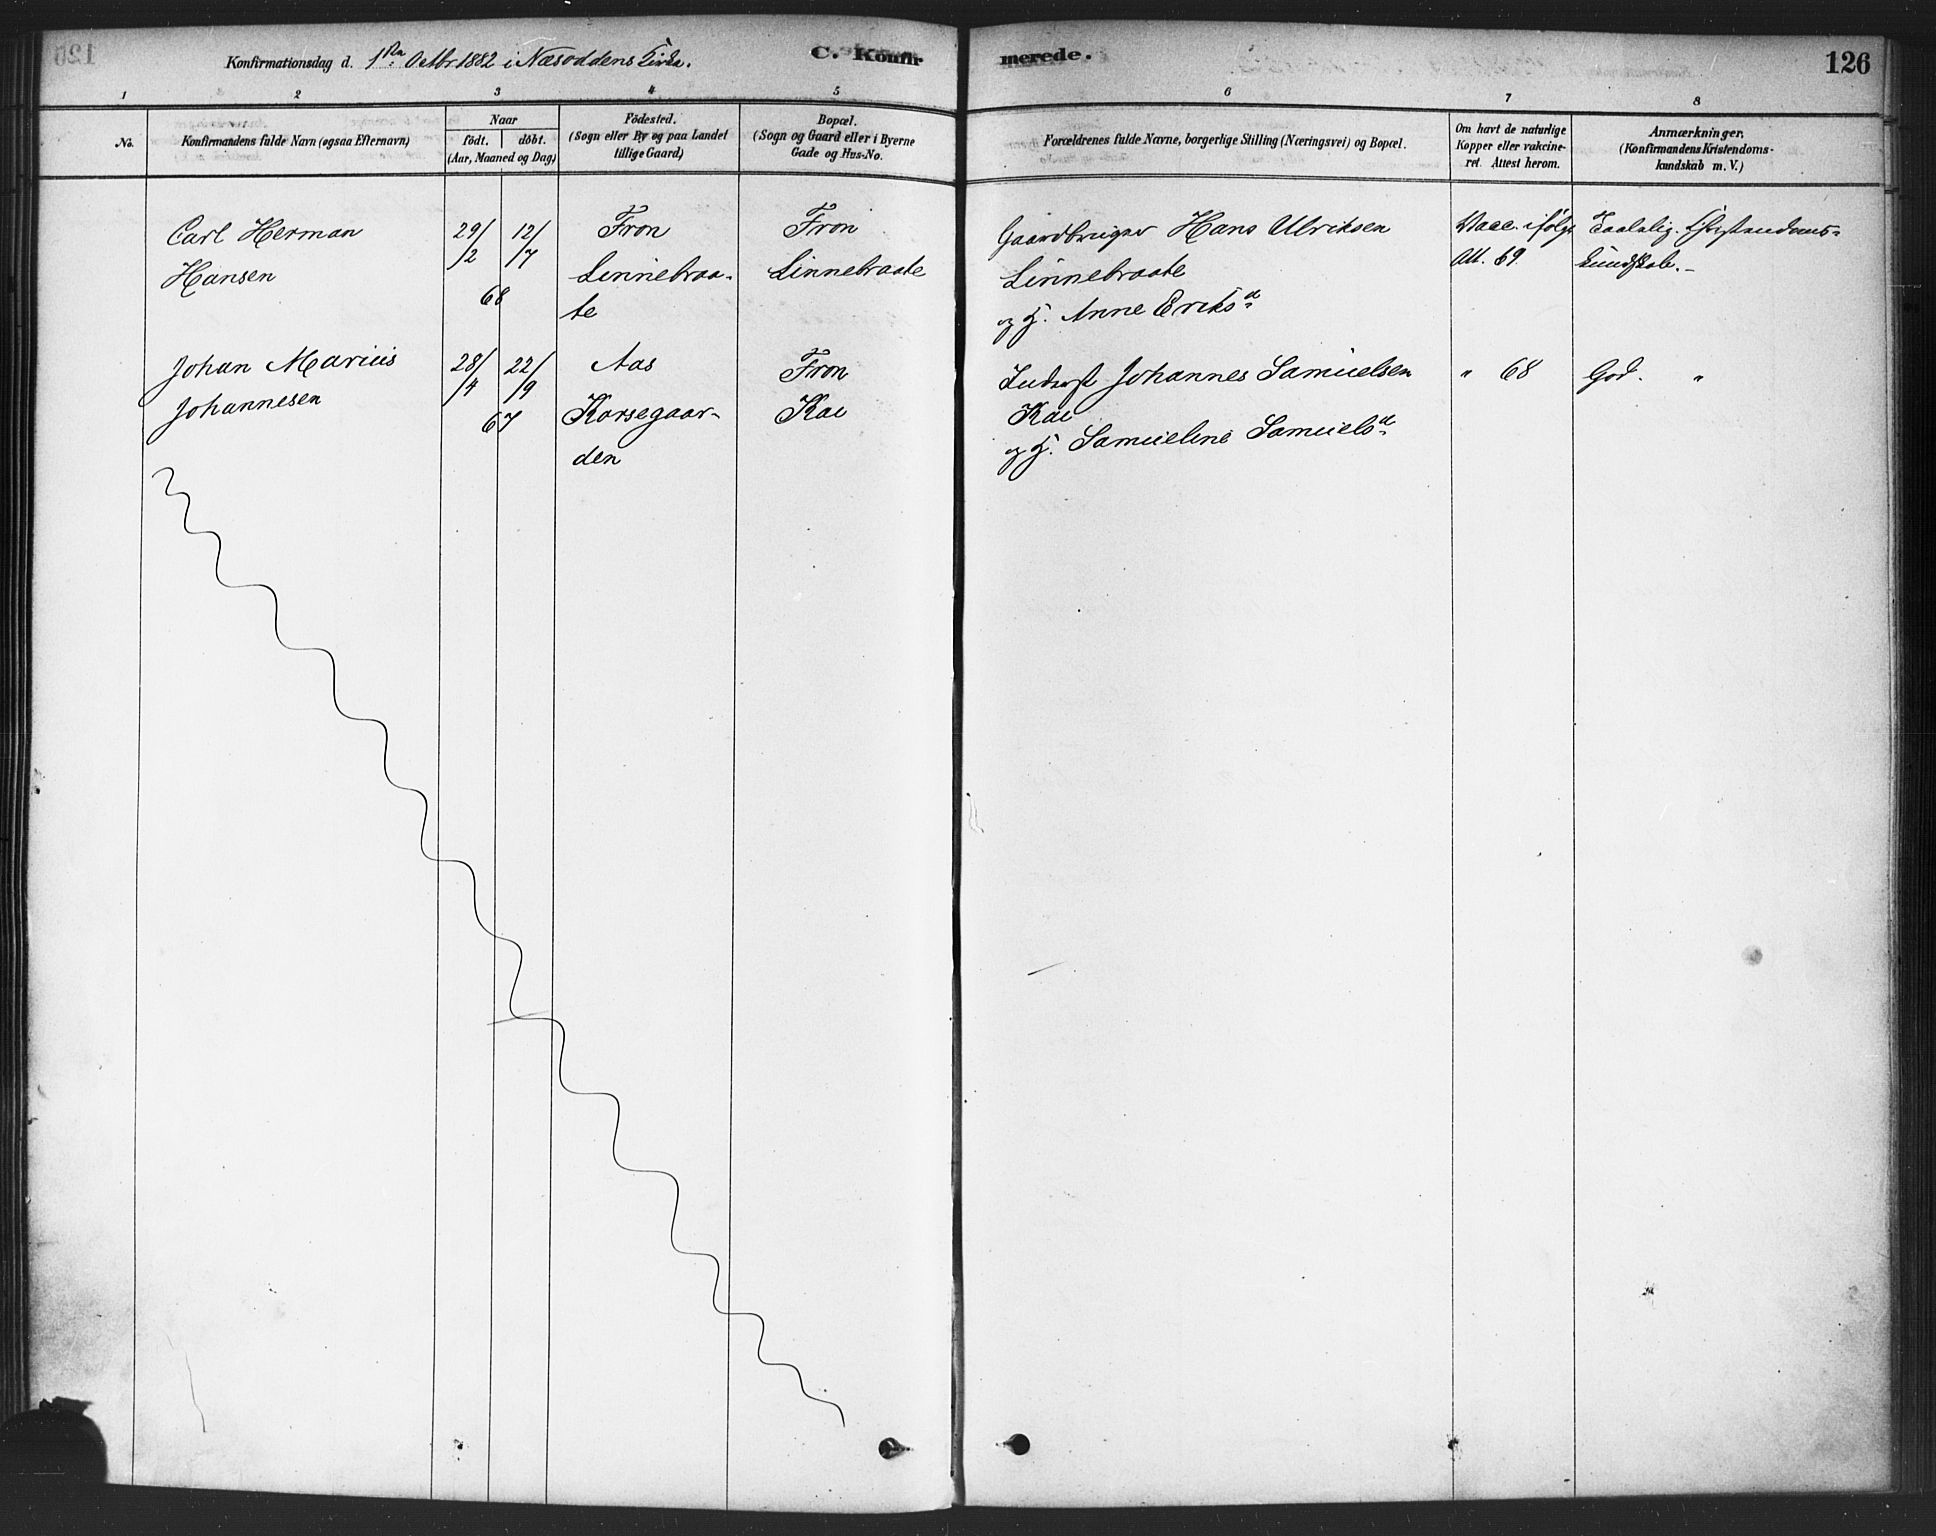 Konfirmationsdag d. 1ste Octbr 1882 i Næsoddens Kirke. C. Konfir
merede. 126
1 2 3 4 5
6 7 8
No. Konfirmandens fulde Navn (ogsaa Efternavn) Naar födt. döbt. (Aar, Maaned og Dag) Födested. (Sogn eller By og paa Landet tillige Gaard) Bopæl. (Sogn og Gaard eller i Byerne Gade og Hus-No.
Forældrenes fulde Navne, borgerlige Stilling (Næringsvei) og Bopæl. Om havt de naturlige Kopper eller vakcineret. Attest herom. Anmærkninger. (Konfirmandens Kristendomskundskab m. V.)
Carl Herman 29/ 12/ Fron Fron Gaardbruger Hans Ulriksen Vacc. ifølge Taalelig. Christendoms-
Hansen /2 /7 Linnebraa- Linnebraate Linnebraate Att. 69 kundskab.-
68 te og H. Anne Eriksd
Johan Marius 28/ 22/ Aas Fron Inderst Johannes Samuelsen " 68 God. "
Johannesen /4 /9 Korsegaar- Kae Kae
67 den og H. Samueline Samuelsd